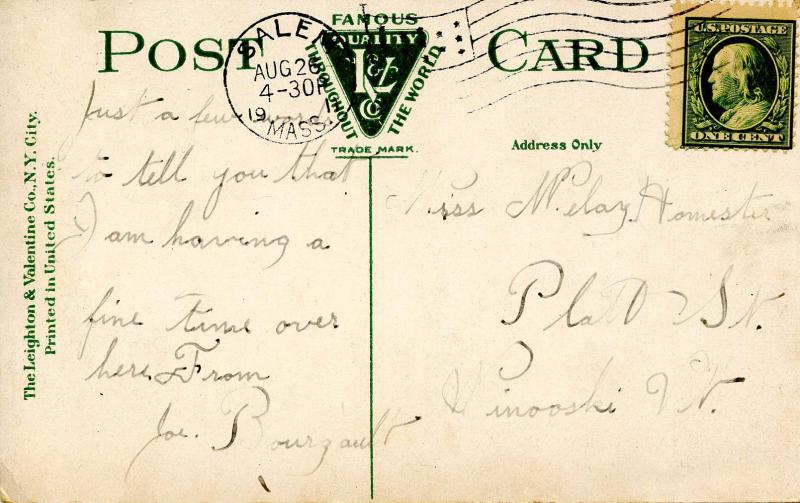 POST CARD
FAMOUS
QUALITY
THROUGHOUT
THE WORLD
L&V
Co
TRADE MARK.
SALEM
AUG 26
4-30P
19 1
MASS.
U.S. POSTAGE
ONE CENT
Address Only
The Leighton & Valentine Co., N.Y. City.
Printed in United States.
Just a few words
to tell you that
I am having a
fine time over
here. From
Joe. Bourgault
Miss
Platt St.
Winooski Vt.